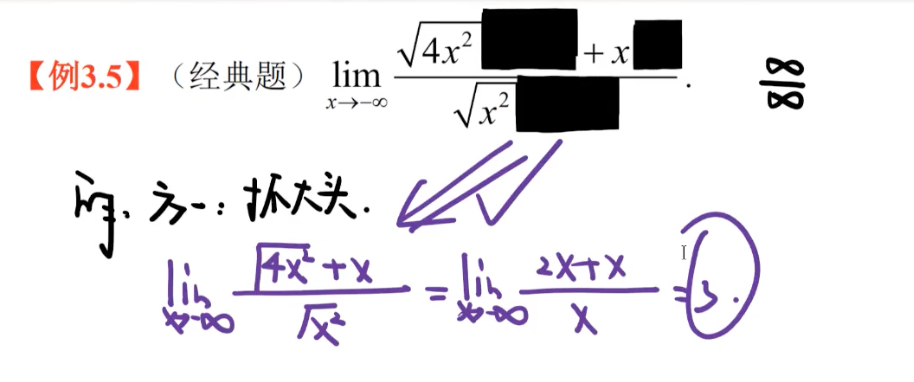 【例3.5】（经典题） lim x→-∞ (√4x² + x) / √x² . ∞/∞
解、方一：抓大头.
lim x→-∞ (√4x² + x) / √x² = lim x→-∞ (2x+x) / x = 3.